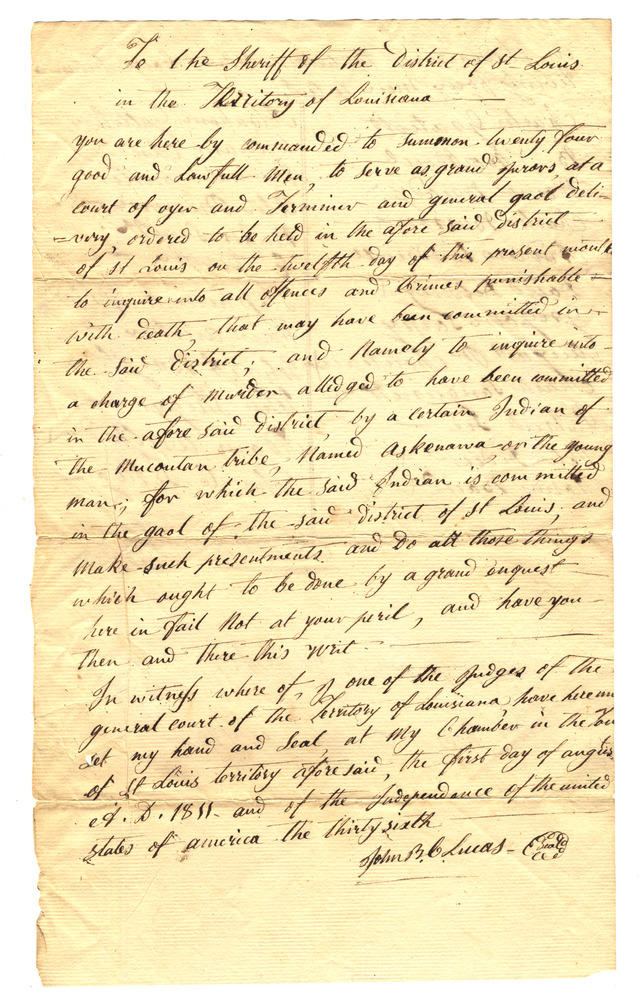 To the Sheriff of the District of St Louis
in the Territory of Louisiana
you are here by commanded to summon twenty four
good and Lawfull Men, to serve as grand jurors, at a
court of oyer and Terminer and general gaol deli-
=very, ordered to be held in the afore said district
of St Louis on the twelfth day of this present month
to inquire into all offences and Crimes punishable
with death, that may have been committed in
the said district, and Namely to inquire into
a charge of Murder alledged to have been committed
in the afore said district, by a certain Indian of
the Mucoutan tribe, Named Askenawa or the young
man; for which the said Indian is committed
in the gaol of the said district of St Louis, and
make such presentments and do all those things
which ought to be done by a grand enquest
here in fail Not at your peril, and have you
then and there this writ
In witness where of, J one of the Judges of the
general court of the Territory of Louisiana have here un
set my hand and Seal, at My Chamber in the Tow
of St Louis territory afore said, the first day of augus
A. D. 1811 and of the Independence of the united
states of america the thirty sixth
John B. C. Lucas Seal